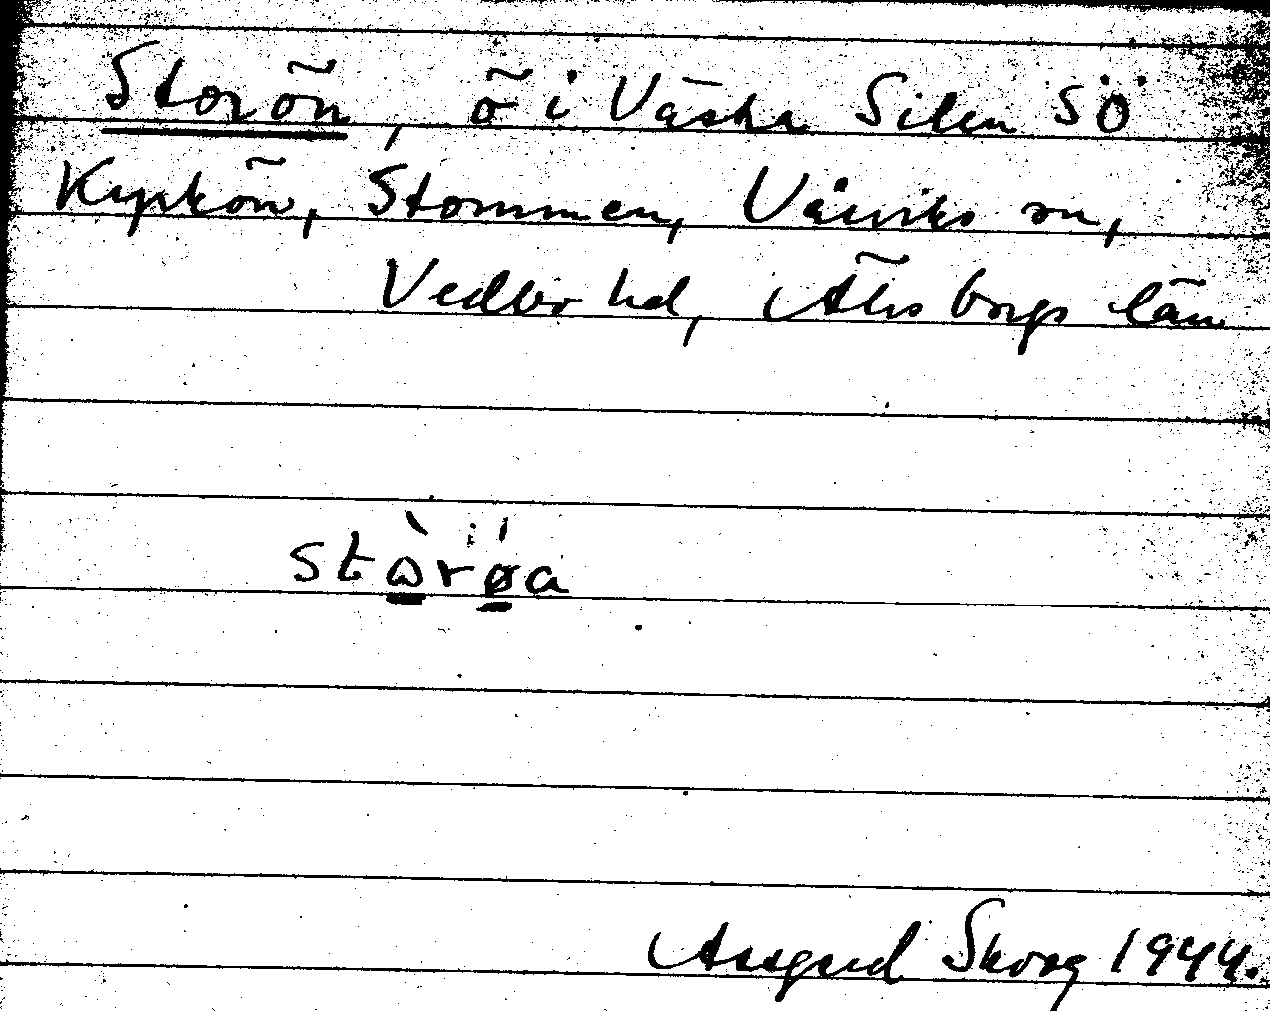 Storön, ö i Västra Silen SÖ
Kyrkön, Stommen, Vårviks sn,
Vedbo hd, Älvsborgs län
stòrøa
Assgerd Skoog 1944.